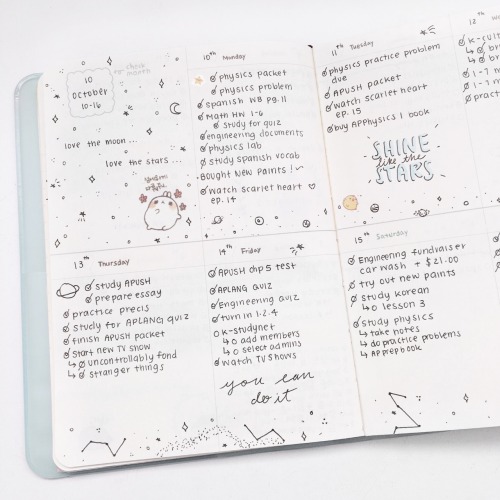 10
October
10-16
love the moon...
love the stars...
10th Monday
physics packet
physics problem
spanish WB pg. 11
Math HW 1-6
study for quiz
engineering documents
physics lab
study spanish vocab
Bought New Paints!
watch scarlet heart
ep. 14
11th Tuesday
physics practice problem
due
APUSH packet
watch scarlet heart
ep. 15
buy AP physics 1 book
SHINE
like the
STARS
12th
K-cult
br
br
1-7
1-7
practi
13th Thursday
study APUSH
prepare essay
practice precis
study for APLANG quiz
finish APUSH packet
Start new TV show
uncontrollably fond
stranger things
14th Friday
APUSH chp 5 test
APLANG QUIZ
Engineering quiz
turn in 1.2.4
K-studynet
↳ o add members
↳ o select admins
watch TV shows
you can
do it
15th Saturday
Engineering fundraiser
car wash + $21.00
try out new paints
study korean
↳ o lesson 3
study physics
↳ take notes
↳ do practice problems
↳ AP prep book